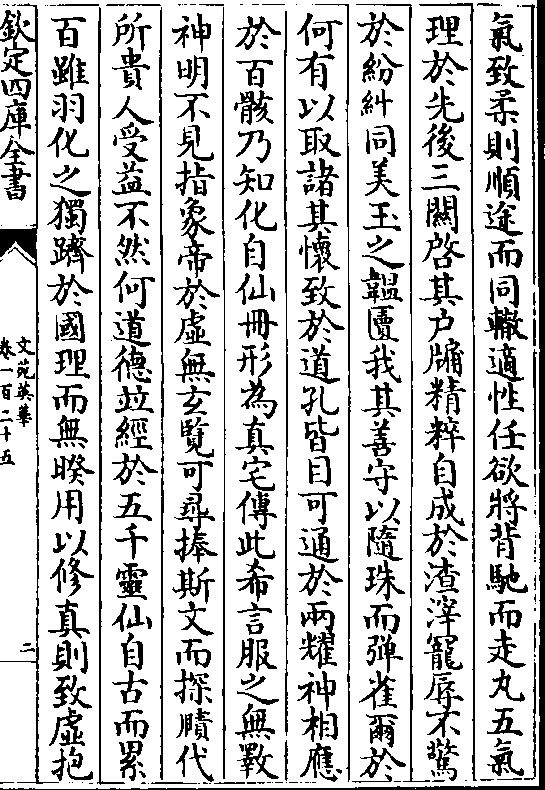 氣致柔則順途而同轍適性任欲將背馳而走丸五氣
理於先後三關啓其户牖精粹自成於渣滓寵辱不驚
於紛糾同美玉之韞匵我其善守以隨珠而弹雀爾於
何有以取諸其懐致於道孔皆目可通於兩耀神相應
於百骸乃知化自仙冊形為真宅傳此希言服之無斁
神明不見指象帝於虚無玄覽可尋捧斯文而探賾代
所貴人受益不然何道德並經於五千靈仙自古而累
百雖羽化之獨躋於國理而無暌用以修真則致虚抱
欽定四庫全書
文苑英華
卷一百二十五
二